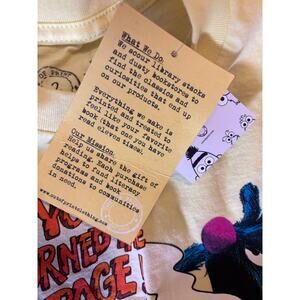 What We Do:
We scour library stacks
and dusty bookstores to
find the classics and
curiosities that end up
on our products.
Everything we make is
printed and treated to
feel like your favorite
book (that one you have
read eleven times).
Our Mission:
Help us share the gift of
reading. Each purchase
helps to fund literacy
programs and book
donations to communities
in need.
www.outofprintclothing.com
OF PRINT
YOU
TURNED THE
PAGE!